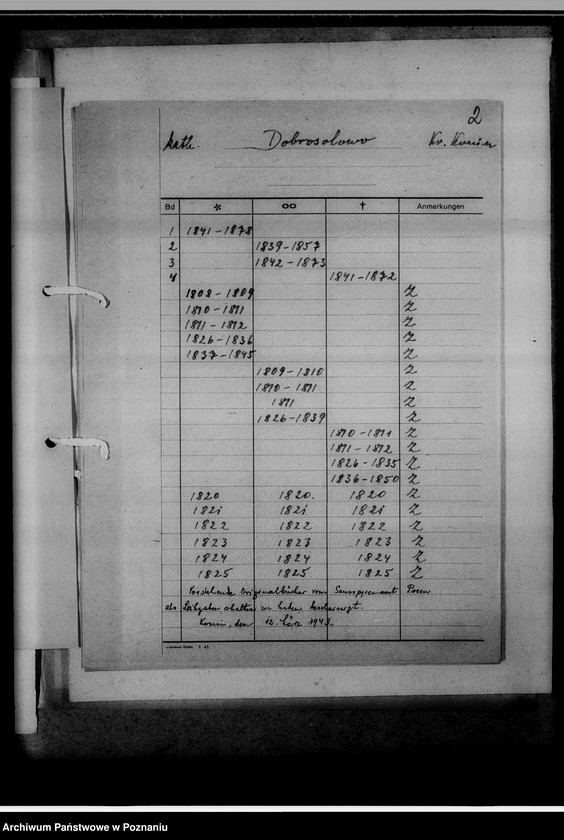 2
kath. Dobrosolowo Kr. Konin
Bd * ∞ † Anmerkungen
1 1841-1878
2 1839-1857
3 1842-1873
4 1841-1872
1808-1809 Z
1810-1811 Z
1811-1812 Z
1826-1836 Z
1837-1845 Z
1809-1810 Z
1810-1811 Z
1811 Z
1826-1839 Z
1810-1811 Z
1811-1812 Z
1826-1835 Z
1836-1850 Z
1820 1820. 1820 Z
1821 1821 1821 Z
1822 1822 1822 Z
1823 1823 1823 Z
1824 1824 1824 Z
1825 1825 1825 Z
Vorstehende Originalbücher vom Gausippenamt Posen
als Leihgaben erhalten zu haben bescheinigt.
Konin, den 12. März 1943.
Archiwum Państwowe w Poznaniu